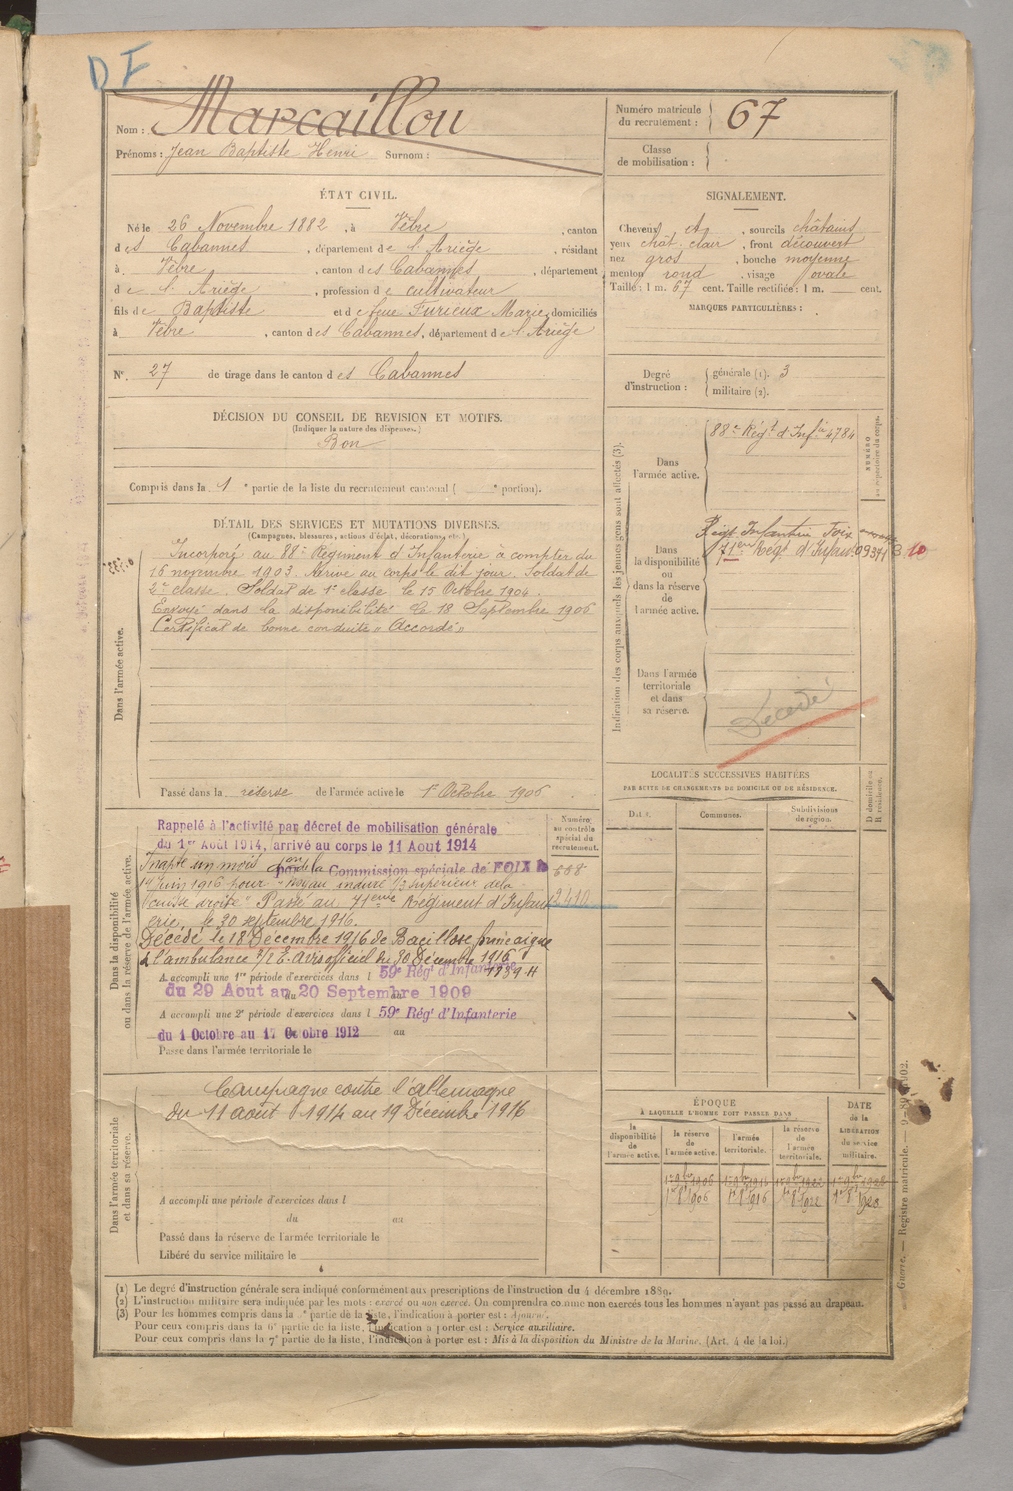 DF
Nom : Marcaillou
Prénoms : Jean Baptiste Henri Surnom :
Numéro matricule du recrutement : 67
Classe de mobilisation :
ÉTAT CIVIL.
Né le 26 Novembre 1882, à Vèbre, canton
des Cabannes, département de l'Ariège, résidant
à Vèbre, canton des Cabannes, département
de l'Ariège, profession de cultivateur
fils de Baptiste et de feue Furieux Marie, domiciliés
à Vèbre, canton des Cabannes, département de l'Ariège
N°. 27 de tirage dans le canton des Cabannes
SIGNALEMENT.
Cheveux et, sourcils châtains
yeux chât. clair, front découvert
nez gros, bouche moyenne
menton rond, visage ovale
Taille : 1 m. 67 cent. Taille rectifiée : 1 m. cent.
MARQUES PARTICULIÈRES :
Degré d'instruction : générale (1). 3
militaire (2).
DÉCISION DU CONSEIL DE REVISION ET MOTIFS.
(Indiquer la nature des dispenses.)
Bon
Compris dans la 1e partie de la liste du recrutement cantonal ( e portion).
DÉTAIL DES SERVICES ET MUTATIONS DIVERSES.
(Campagnes, blessures, actions d'éclat, décorations, etc.)
Dans l'armée active.
Incorporé au 88e Régiment d'Infanterie à compter du
16 novembre 1903. Arrivé au corps le dit jour. Soldat de
2e classe. Soldat de 1e classe le 15 Octobre 1904.
Envoyé dans la disponibilité le 18 Septembre 1906
Certificat de bonne conduite "Accordé"
Passé dans la réserve de l'armée active le 1er Octobre 1906.
Indication des corps auxquels les jeunes gens sont affectés (3).
Dans l'armée active.
88e Régt d'Infie 4784
NUMÉRO au répertoire du corps.
Dans la disponibilité ou dans la réserve de l'armée active.
Régt Infanterie Foix
71ème Régt d'Infant 09371
10
Dans l'armée territoriale et dans sa réserve.
Décédé
Dans la disponibilité ou dans la réserve de l'armée active.
Rappelé à l'activité par décret de mobilisation générale
du 1er Août 1914, arrivé au corps le 11 Août 1914
Inapte un mois par la Commission spéciale de FOIX
14 juin 1916 pour "Noyau induré 1/3 supérieur de la
cuisse droite" Passé au 71ème Régiment d'Infant
erie, le 30 septembre 1916.
Décédé le 18 Décembre 1916 de Bacillose forme aigue
à l'ambulance 2/2 E. avis officiel du 30 Décembre 1916
A accompli une 1re période d'exercices dans l 59e Régt d'Infanterie
du 29 Aout au 20 Septembre 1909
A accompli une 2e période d'exercices dans l 59e Régt d'Infanterie
du 1 Octobre au 17 Octobre 1912 au
Passé dans l'armée territoriale le
Numéro au contrôle spécial du recrutement.
558
2410
LOCALITÉS SUCCESSIVES HABITÉES
PAR SUITE DE CHANGEMENTS DE DOMICILE OU DE RÉSIDENCE.
Dates. Communes. Subdivisions de région. D domicile ou R résidence.
Dans l'armée territoriale et dans sa réserve.
Campagne contre l'allemagne
du 11 août 1914 au 19 Décembre 1916
A accompli une période d'exercices dans l
du au
Passé dans la réserve de l'armée territoriale le
Libéré du service militaire le
ÉPOQUE
À LAQUELLE L'HOMME DOIT PASSER DANS
la disponibilité de l'armée active. la réserve de l'armée active. l'armée territoriale. la réserve de l'armée territoriale. DATE de la LIBÉRATION du service militaire.
1er 9bre 1906 1er 9bre 1916 1er 9bre 1922 1er 9bre 1928
1er 8bre 1906 1er 8bre 1916 1er 8bre 1922 1er 8bre 1928
(1) Le degré d'instruction générale sera indiqué conformément aux prescriptions de l'instruction du 4 décembre 1889.
(2) L'instruction militaire sera indiquée par les mots : exercé ou non exercé. On comprendra comme non exercés tous les hommes n'ayant pas passé au drapeau.
(3) Pour les hommes compris dans la partie de la liste, l'indication à porter est : Ajourné.
Pour ceux compris dans la 6e partie de la liste, l'indication à porter est : Service auxiliaire.
Pour ceux compris dans la 7e partie de la liste, l'indication à porter est : Mis à la disposition du Ministre de la Marine. (Art. 4 de la loi.)
Guerre. — Registre matricule. —